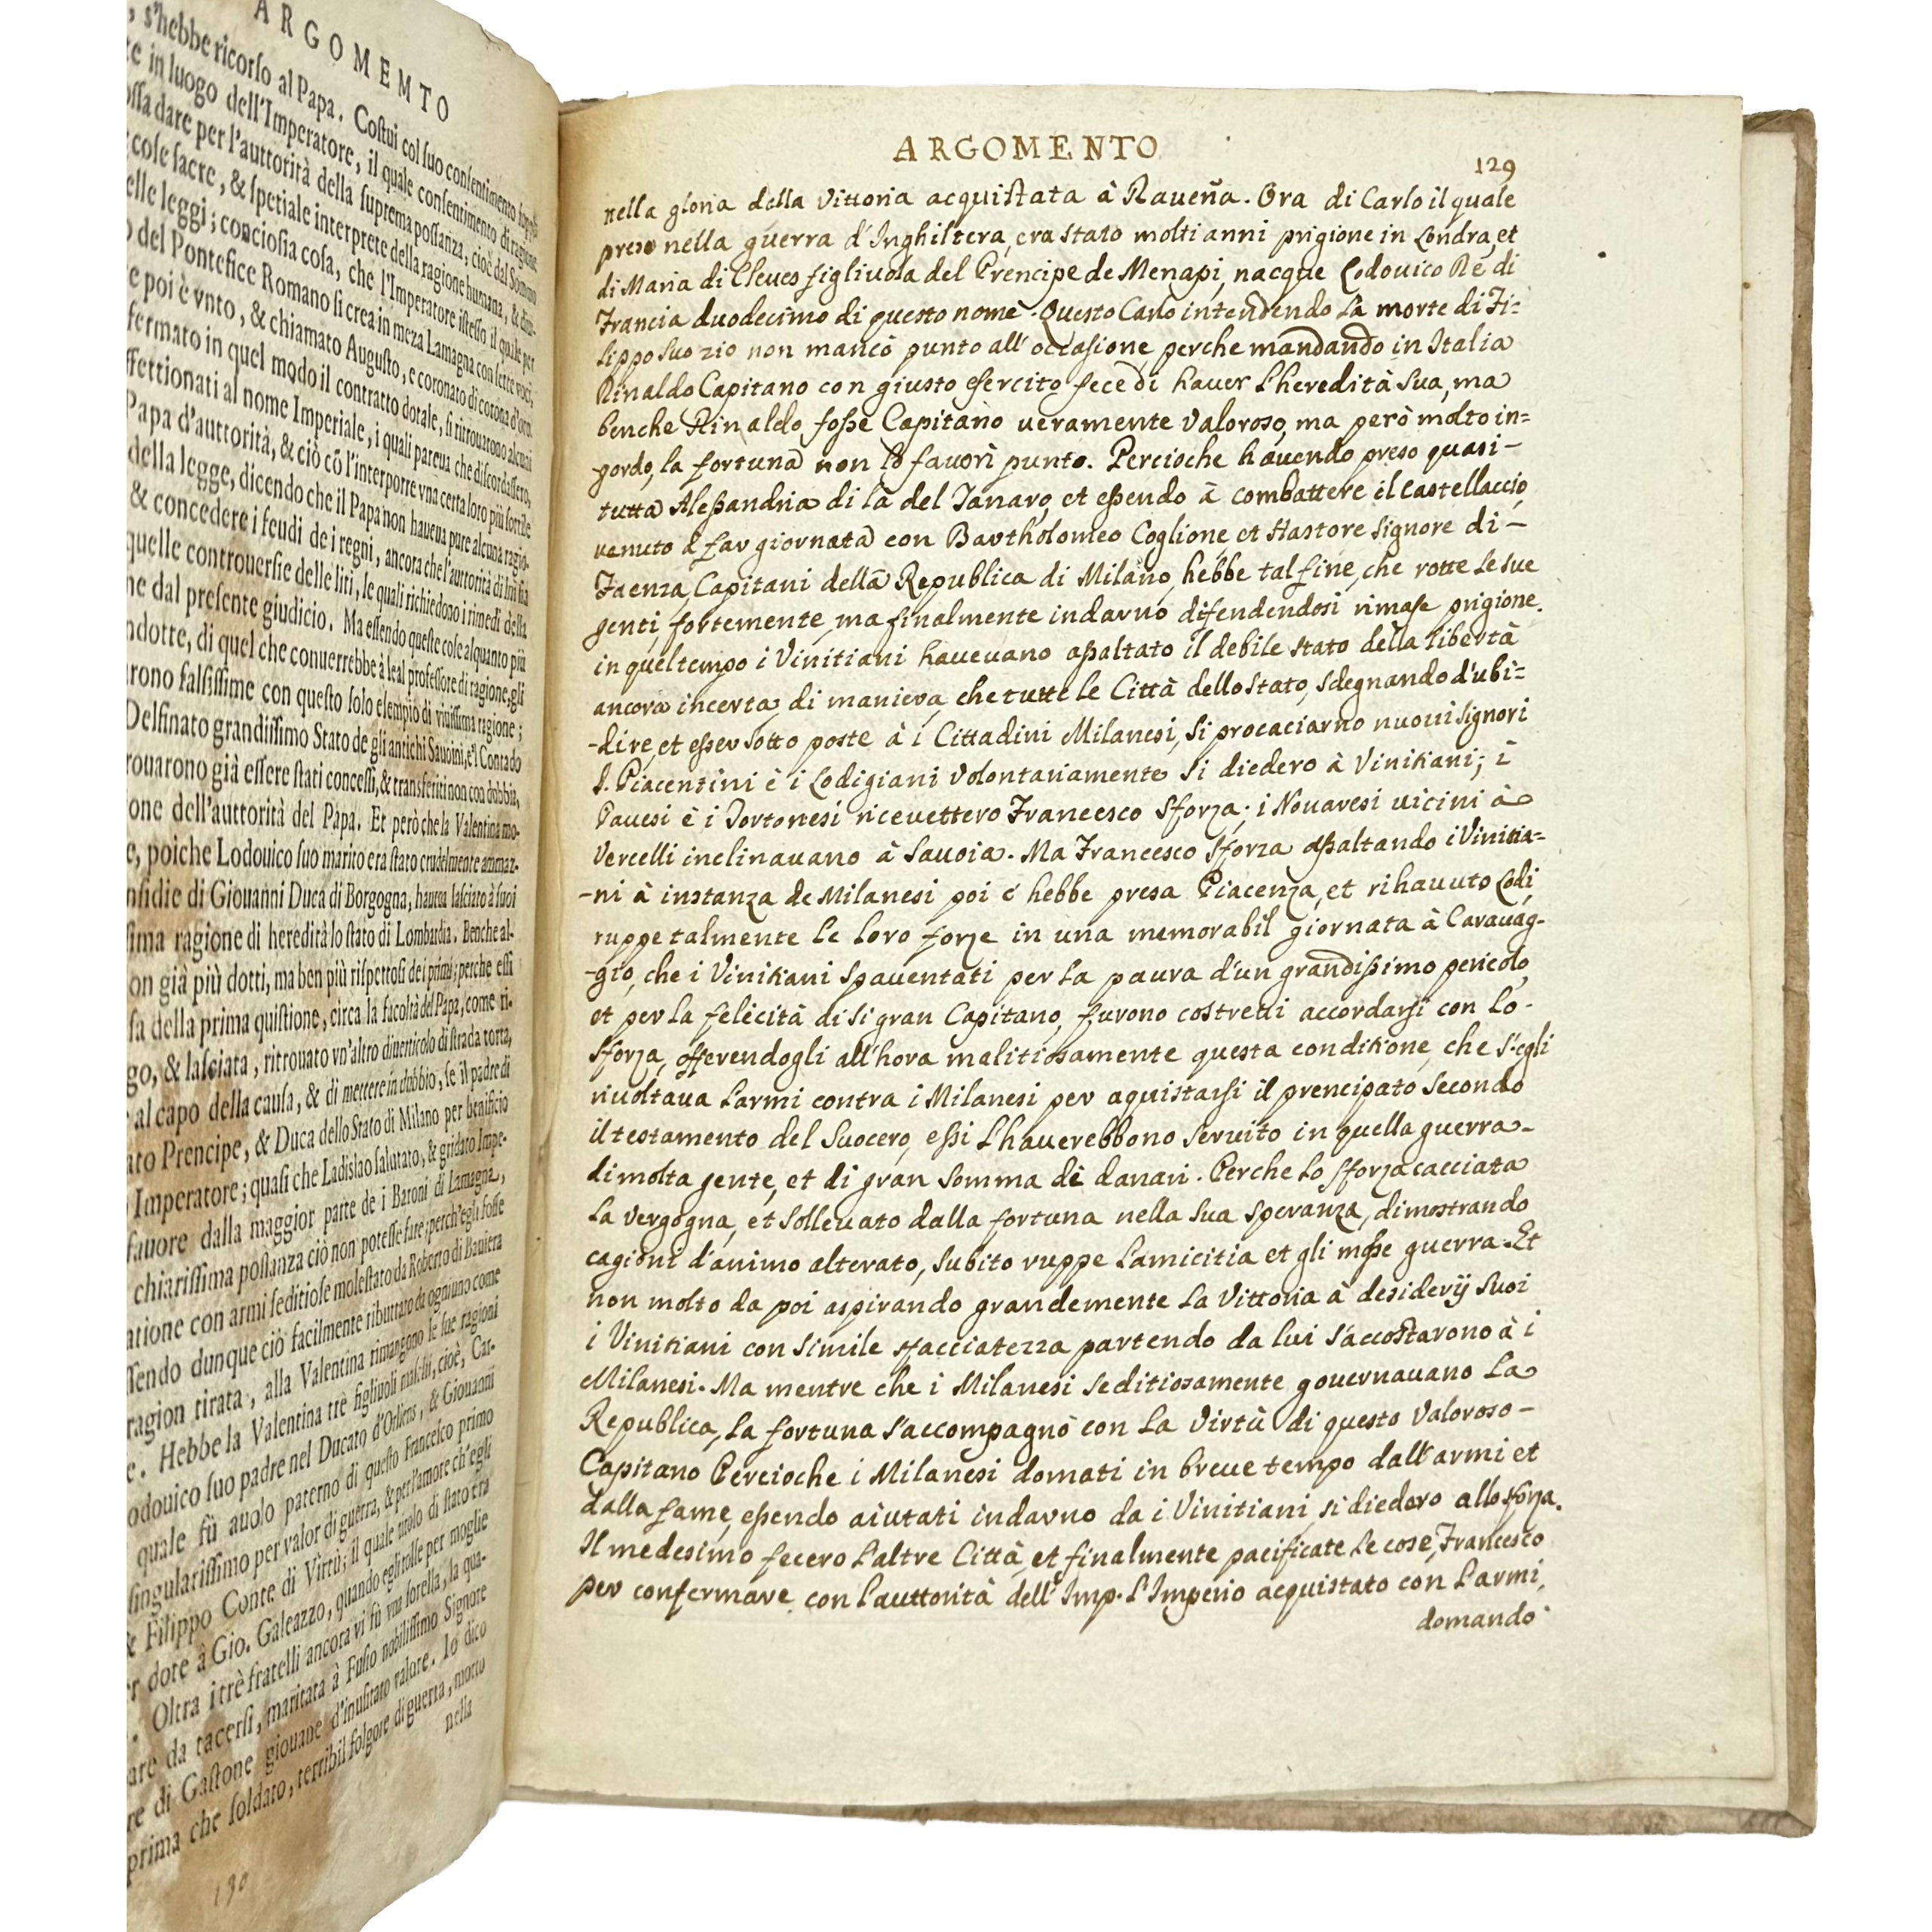 ARGOMEMTO
s'hebbe ricorſo al Papa. Coſtui col ſuo conſentimento
in luogo dell'Imperatore, il quale conſentimento di ragione
dare per l'auttorità della ſuprema poſſanza, cioè dal Sommo
coſe ſacre, & ſpetiale interprete della ragione humana, &
elle leggi; conciosia coſa, che l'Imperatore iſteſſo il quale per
del Pontefice Romano ſi crea in meza Lamagna con ſette voci,
poi è vnto, & chiamato Auguſto, e coronato di corona d'oro.
fermato in quel modo il contratto dotale, ſi ritrouarono alcuni
ffettionati al nome Imperiale, i quali pareua che diſcordaſſero,
Papa d'auttorità, & ciò cõ l'interporre vna certa loro più ſottile
della legge, dicendo che il Papa non haueua pure alcuna ragio-
& concedere i feudi de i regni, ancora che l'auttorità di lui ſia
quelle controuerſie delle liti, le quali richiedono i rimedi della
ne dal preſente giudicio. Ma eſſendo queſte coſe alquanto più
ndotte, di quel che conuerrebbe à leal profeſſore di ragione, gli
rono falſiſſime con queſto ſolo eſempio di viuiſſima ragione;
Delfinato grandiſſimo Stato de gli antichi Sauoini, e'l Contado
rouarono già eſſere ſtati conceſſi, & transferiti non con dobbia,
one dell'auttorità del Papa. Et però che la Valentina mo-
e, poiche Lodouico ſuo marito era ſtato crudelmente ammaz-
nſidie di Giouanni Duca di Borgogna, haueua laſciato à ſuoi
ſima ragione di heredità lo ſtato di Lombardia. Benche al-
on già più dotti, ma ben più riſpettoſi de i primi; perche eſſi
ſa della prima quiſtione, circa la facoltà del Papa, come ri-
go, & laſciata, ritrouato vn'altro diuerticolo di ſtrada torta,
al capo della cauſa, & di mettere in dubbio, ſe il padre di
ato Prencipe, & Duca dello Stato di Milano per benificio
Imperatore; quaſi che Ladislao ſalutato, & gridato Impe-
fauore dalla maggior parte de i Baroni di Lamagna,
chiariſſima poſſanza ciò non poteſſe fare; perch'egli foſſe
atione con armi ſeditioſe moleſtato da Roberto di Bauiera
ſſendo dunque ciò facilmente ributtato da ogniuno come
ragion tirata, alla Valentina rimangono le ſue ragioni
e. Hebbe la Valentina trè figliuoli maſchi, cioè, Car-
odouico ſuo padre nel Ducato d'Orliens, & Giouanni
quale fù auolo paterno di queſto Franceſco primo
ſingulariſſimo per valor di guerra, & per l'amore ch'egli
& Filippo Conte di Virtù; il quale titolo di ſtato era
r dote à Gio. Galeazzo, quando egli tolſe per moglie
. Oltra i trè fratelli ancora vi fù vna ſorella, la qua-
are da tacerſi, maritata à Fuſio nobiliſſimo Signore
re di Gaſtone giouane d'inuſitato valore. Io dico
prima che ſoldato, terribil folgore di guerra, morto
nella
130
ARGOMENTO
129
nella gloria della Vittoria acquistata àRaueña. Ora di Carlo il quale
preso nella guerra d'Inghilterra, era stato molti anni prigione in Londra, et
di Maria di Cleves figliuola del Prencipe de Menapi, nacque Lodouico Rè di
Francia duodecimo di questo nome. Questo Carlo intendendo la morte di Fi=
lippo suo zio non mancò punto all'occasione, perche mandando in Italia
Rinaldo Capitano con giusto esercito, fece di hauer l'heredità sua, ma
benche Rinaldo fosse Capitano ueramente valoroso, ma però molto in=
gordo, la fortuna non lo favorì punto. Percioche hauendo preso quasi-
tutta Alessandria di là del Tanaro, et essendo à combattere il castellaccio,
venuto à far giornata con Bartholomeo Coglione, et Hastore signore di-
Faenza, Capitani della Republica di Milano, hebbe tal fine, che rotte le sue
genti, fortemente, ma finalmente indarno difendendosi rimase prigione.
in quel tempo i Vinitiani havevano assaltato il debile stato della libertà
ancora incerta, di maniera, che tutte le Città dello stato, sdegnando d'ubi=
-dire, et esser sotto poste à i Cittadini Milanesi, si procaciarno nuoui signori
I. Piacentini è i Lodigiani volontariamente si diedero à Vinitiani; i
Pauesi è i Tortonesi riceuettero Francesco Sforza; i Nouaresi uicini à
Vercelli inclinauano à Sauoia. Ma Francesco Sforza assaltando i Vinitia=
-ni à instanza de Milanesi poi c'hebbe presa Piacenza, et rihauuto Lodi,
ruppe talmente le loro forze in una memorabil giornata à Carauag-
-gio, che i Vinitiani spauentati per la paura d'un grandissimo pericolo,
et per la felicità di si gran Capitano, furono costretti accordarsi con lo-
Sforza, offerendogli all'hora malitiosamente questa conditione, che s'egli
riuoltaua l'armi contra i Milanesi per aquistarsi il prencipato secondo
il testamento del Suocero, essi l'hauerebbono seruito in quella guerra-
di molta gente, et di gran somma di danari. Perche lo Sforza cacciata
la vergogna, et solleuato dalla fortuna nella sua speranza, dimostrando
cagioni d'animo alterato, subito ruppe l'amicitia et gli mosse guerra. Et
non molto da poi aspirando grandemente la Vittoria à desiderij suoi
i Vinitiani con simile sfacciatezza partendo da lui s'accostarono à i
Milanesi. Ma mentre che i Milanesi seditiosamente gouernauano la
Republica, la fortuna s'accompagnò con la virtù di questo valoroso-
Capitano Percioche i Milanesi domati in breue tempo dall'armi et
dalla fame, essendo aiutati indarno da i Vinitiani, si diedero allo sforza.
Il medesimo fecero l'altre Città, et finalmente pacificate le cose, Francesco
per confermare con l'auttorità dell'Imp. l'Imperio acquistato con l'armi,
domando